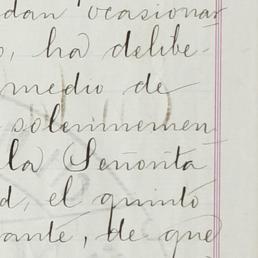 dan ocasionar
o, ha delibe-
medio de
solemnemen
la Señorita
d, el quinto
ante, de que